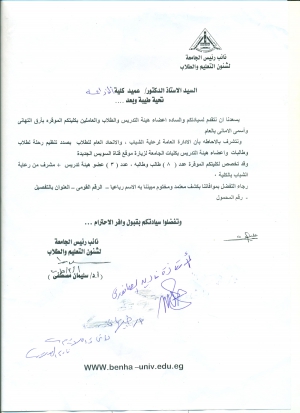 نائب رئيس الجامعة
لشئون التعليم والطلاب
السيد الاستاذ الدكتور/ عميد كلية
تحية طيبة وبعد ....
يسعدنا أن نتقدم لسيادتكم والسادة اعضاء هيئة التدريس والطلاب والعاملين بكليتكم الموقرة بأرق التهاني
وأسمى الاماني بالعام
ونتشرف بالاحاطه بأن الادارة العامة لرعاية الشباب ، والاتحاد العام للطلاب بصدد تنظيم رحلة لطلاب
وطالبات واعضاء هيئة التدريس بكليات الجامعة لزيارة موقع قناة السويس الجديدة
وقد تخصص لكليتكم الموقرة عدد ( ٨ ) طالب وطالبه ، عدد ( ٣ ) عضو هيئة تدريس ، مشرف من رعاية
الشباب بالكلية .
رجاء التفضل بموافاتنا بكشف معتمد ومختوم مبينا به الاسم رباعيا - الرقم القومى - العنوان بالتفصيل
- رقم المحمول
وتفضلوا سيادتكم بقبول وافر الاحترام ...
نائب رئيس الجامعة
لشئون التعليم والطلاب
(أ.د/ سليمان مصطفى )
WWW.benha-univ.edu.eg